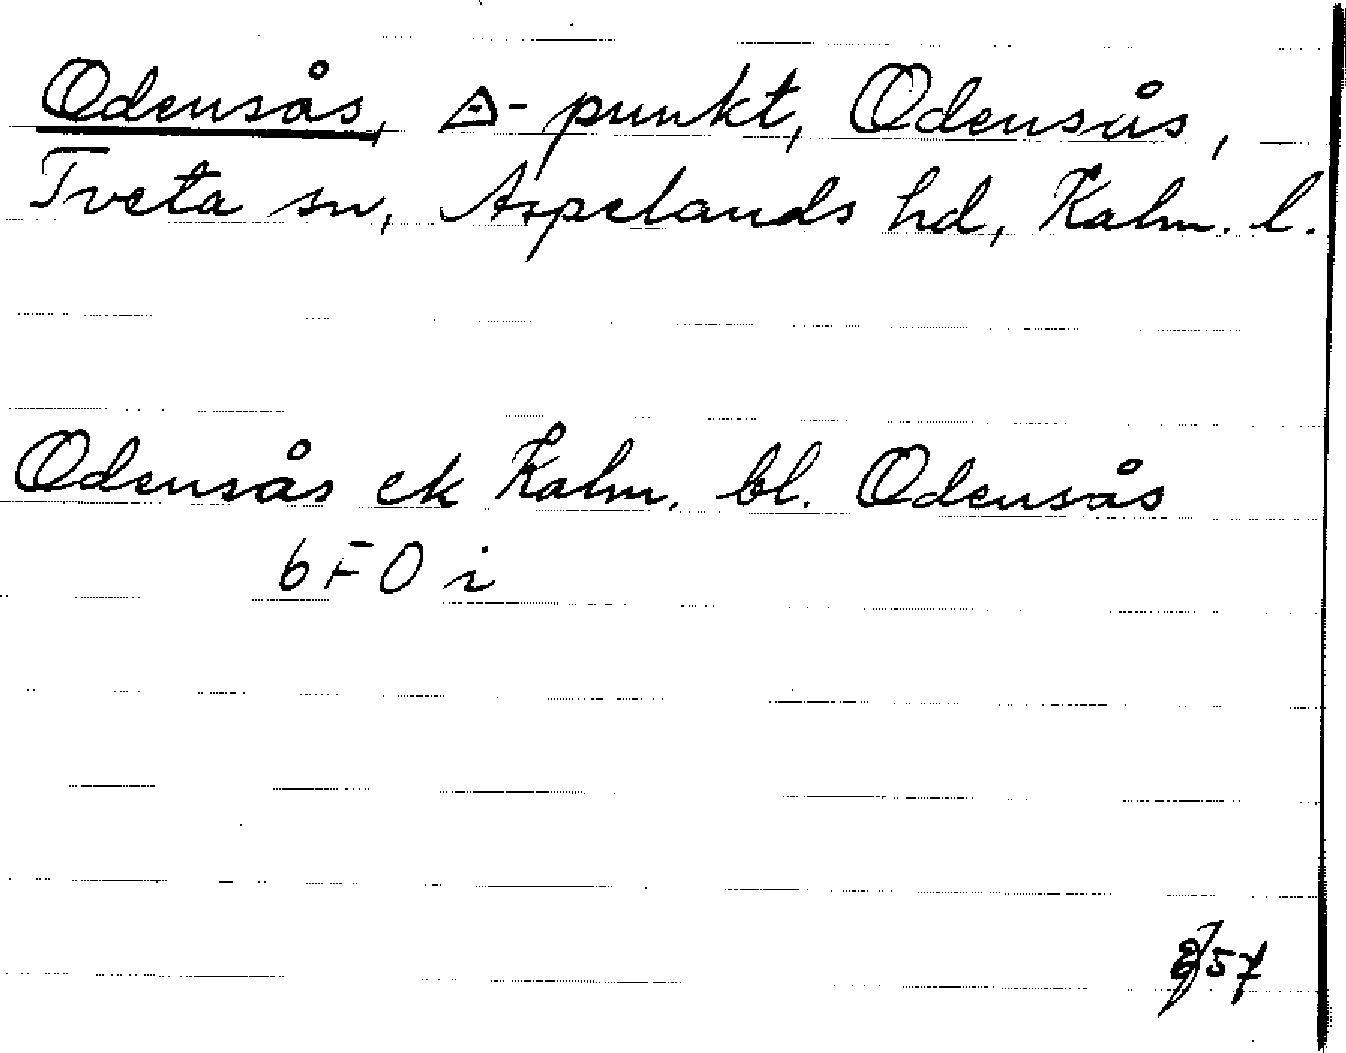 Odensås, △-punkt, Odensås,
Tveta sn, Aspelands hd, Kalm. l.
Odensås ek Kalm. bl. Odensås
6 F 0 i
57